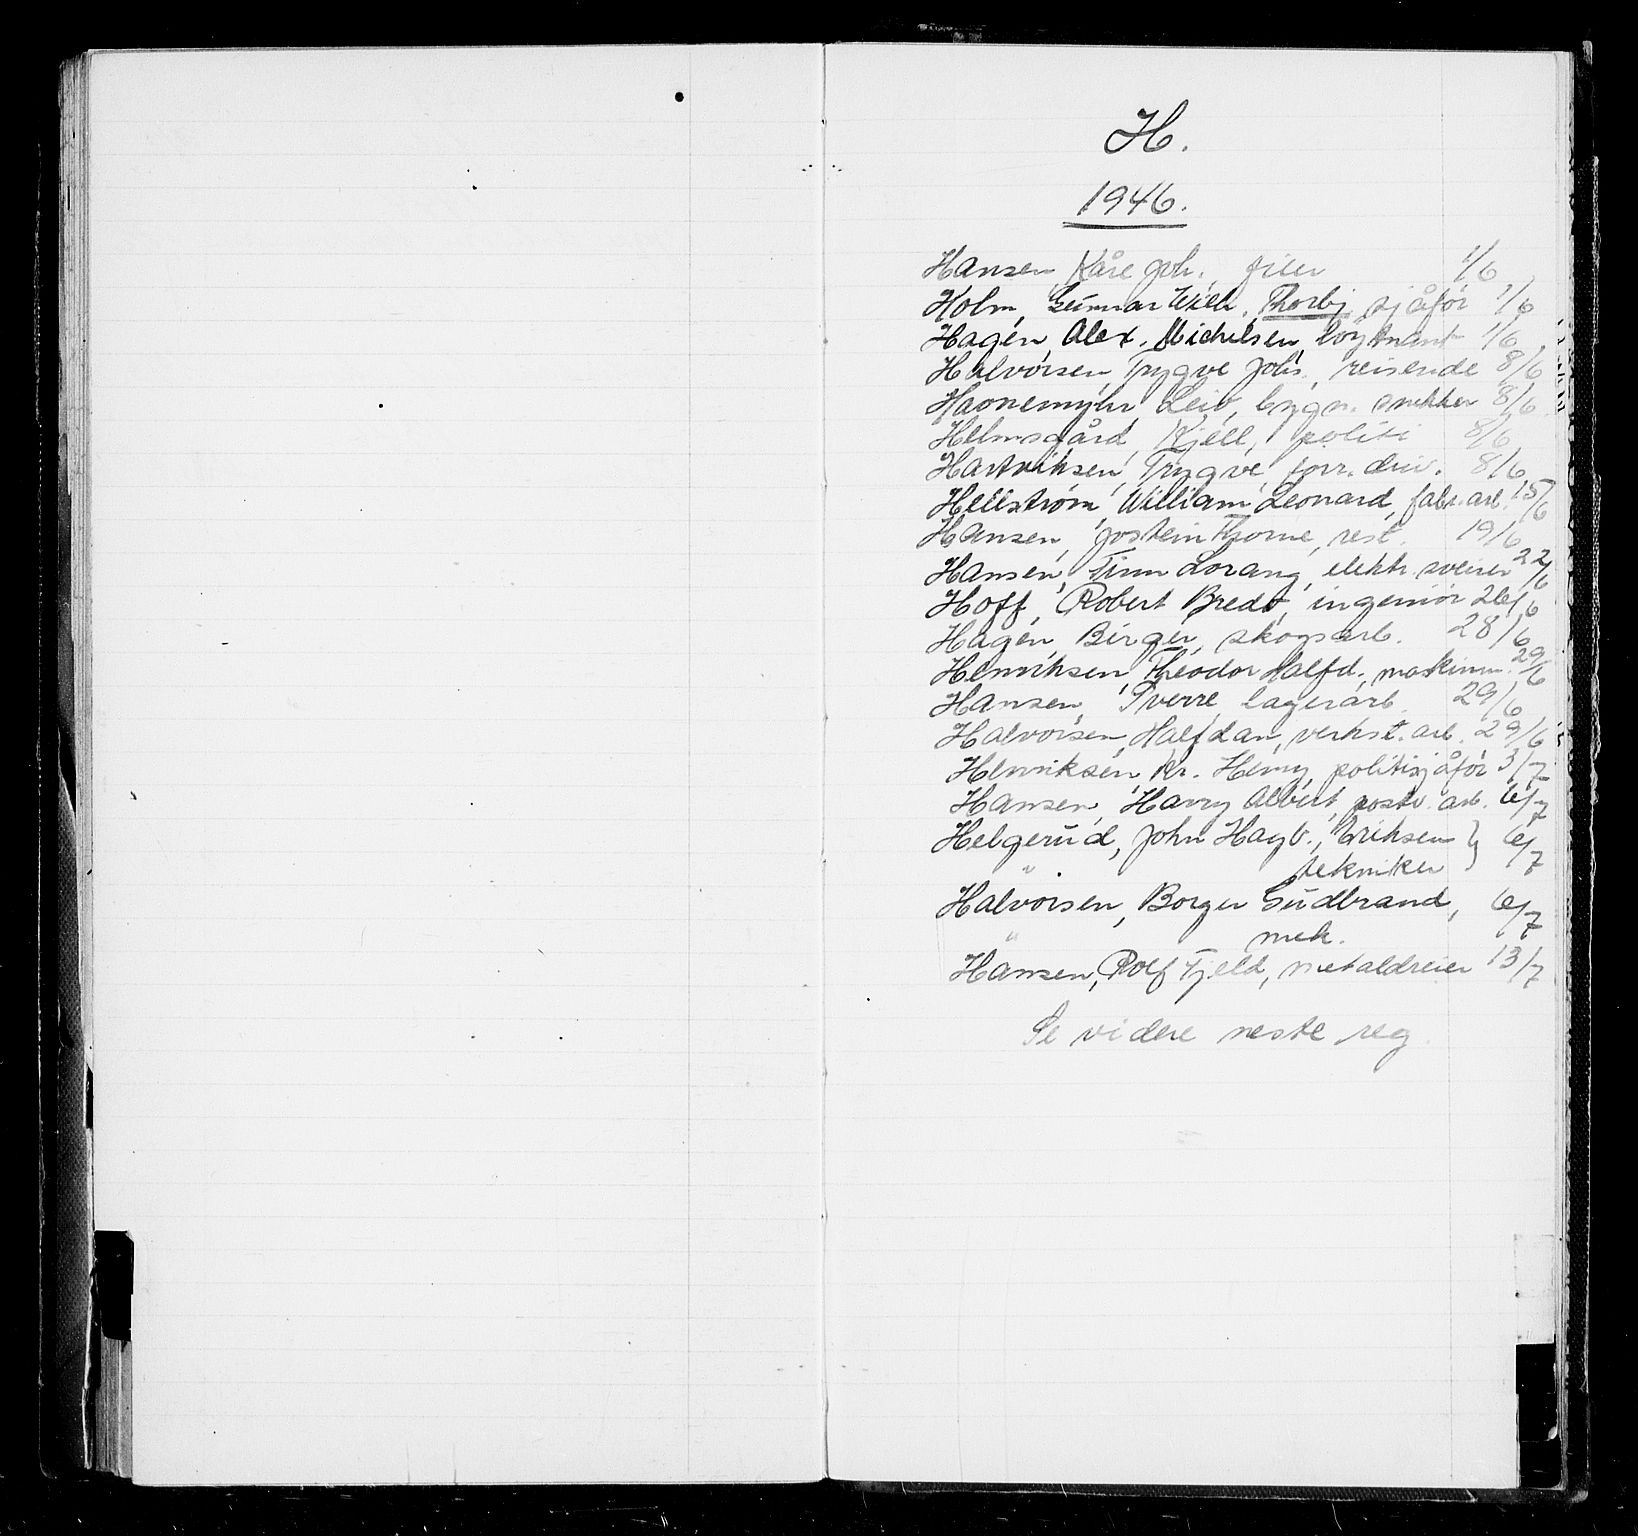 H.
1946.
Hansen, Kåre Joh., filer 1/6
Holm, Gunnar Wilh. Thorbj. sjåfør 1/6
Hagen, Alex. Michelsen, løytnant 1/6
Halvorsen, Trygve Johs., reisende 8/6
Leiv, bygn. snekker 8/6
Helmsgård, Kjell, politi 8/6
Hartviksen, Trygve, forr. driv. 8/6
Hellstrøm, William Leonard, fabr. arb. 15/6
Hansen, Jostein, rest. 19/6
Hansen, Finn Lorang, elektr. sveiser 22/6
Hoff, Robert Bredo, ingeniør 26/6
Hagen, Birger, skogsarb. 28/6
Henriksen, Theodor Halfd., maskinm. 29/6
Hansen, Sverre lagerarb. 29/6
Halvorsen, Halfdan, verkst. arb. 29/6
Henriksen, Kr. Henry, politisjåfør 3/7
Hansen, Harry Albert, postv. arb. 6/7
Helgerud, John Hagb., Eriksen } 6/7
" tekniker
Halvorsen, Borger Gudbrand, 6/7
" mek.
Hansen, Rolf Fjeld, metaldreier 13/7
Se videre neste reg.